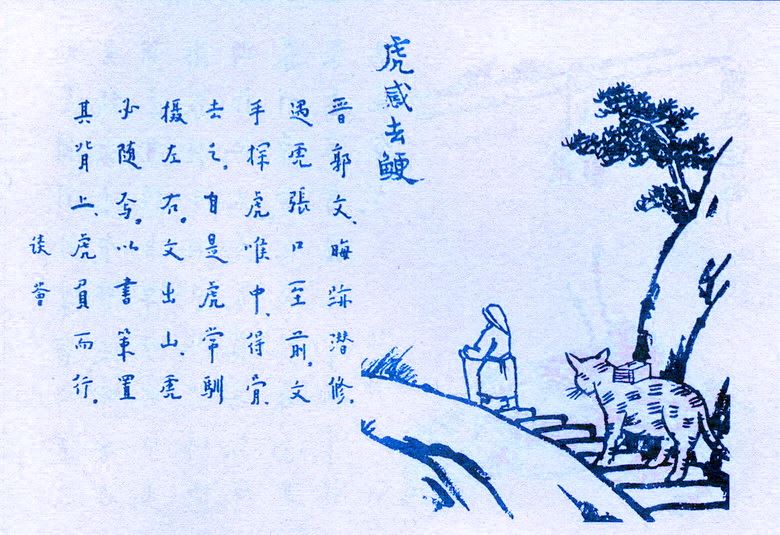 虎感去鯁
晋郭文、晦跡潜修、
遇虎張口至前。文
手探虎喉中、得骨、
去之。自是虎常馴
擾左右。文出山、虎
必随焉。以書策置
其背上、虎負而行。
談薈